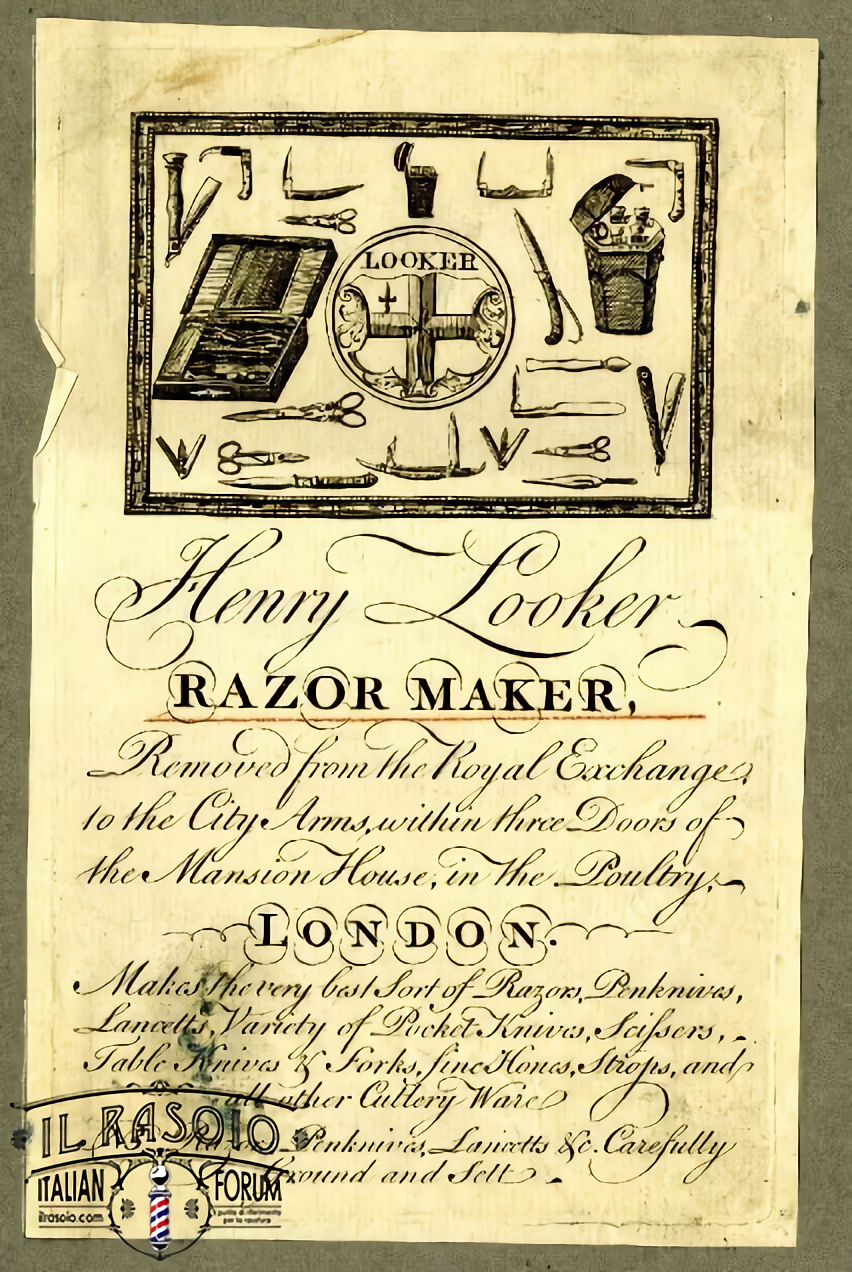 LOOKER
Henry Looker
RAZOR MAKER,
Removed from the Royal Exchange,
to the City Arms, within three Doors of
the Mansion House, in the Poultry,
LONDON.
Makes the very best Sort of Razors, Penknives,
Lancetts, Variety of Pocket Knives, Scissers,
Table Knives & Forks, fine Hones, Strops, and
all other Cutlery Ware
Penknives, Lancetts &c. Carefully
Ground and Sett
IL RASOIO
ITALIAN FORUM
ilrasoio.com
punto di riferimento
per la rasatura